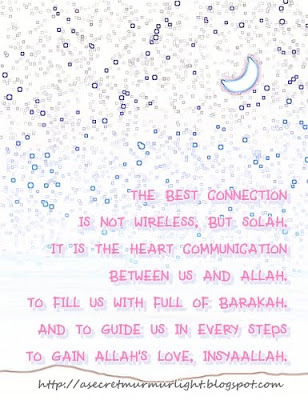 THE BEST CONNECTION
IS NOT WIRELESS, BUT SOLAH.
IT IS THE HEART COMMUNICATION
BETWEEN US AND ALLAH.
TO FILL US WITH FULL OF BARAKAH.
AND TO GUIDE US IN EVERY STEPS
TO GAIN ALLAH'S LOVE, INSYAALLAH.
http://asecretmurmurlight.blogspot.com